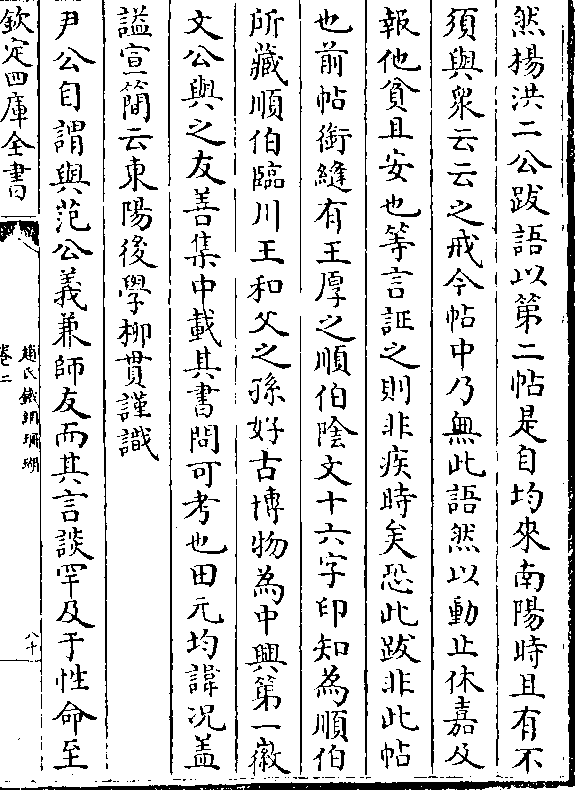 然楊洪二公跋語以第二帖是自均來南陽時且有不
須與衆云云之戒今帖中乃無此語然以動止休嘉及
報他貧且安也等言証之則非疾時矣恐此跋非此帖
也前帖銜縫有王厚之順伯隂文十六字印知為順伯
所藏順伯臨川王和父之孫好古博物為中興第一徽
文公與之友善集中載其書問可考也田元均諱况盖
謚宣簡云東陽後學柳貫謹識
尹公自謂與范公義兼師友而其言談罕及于性命至
欽定四庫全書
趙氏鐵網珊瑚
卷二
八十